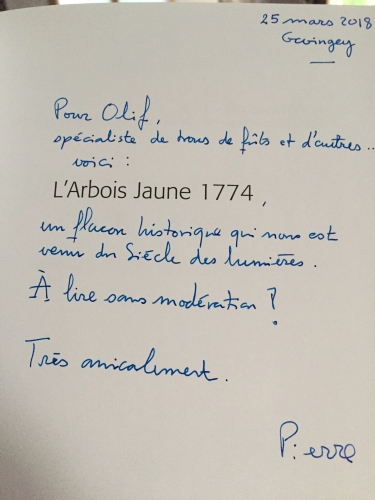 25 mars 2018
Gevingey
Pour Olif,
spécialiste de trous de fûts et d'autres...
voici :
L'Arbois Jaune 1774,
un flacon historique qui nous est
venu du Siècle des lumières.
À lire sans modération ?
Très amicalement.
Pierre